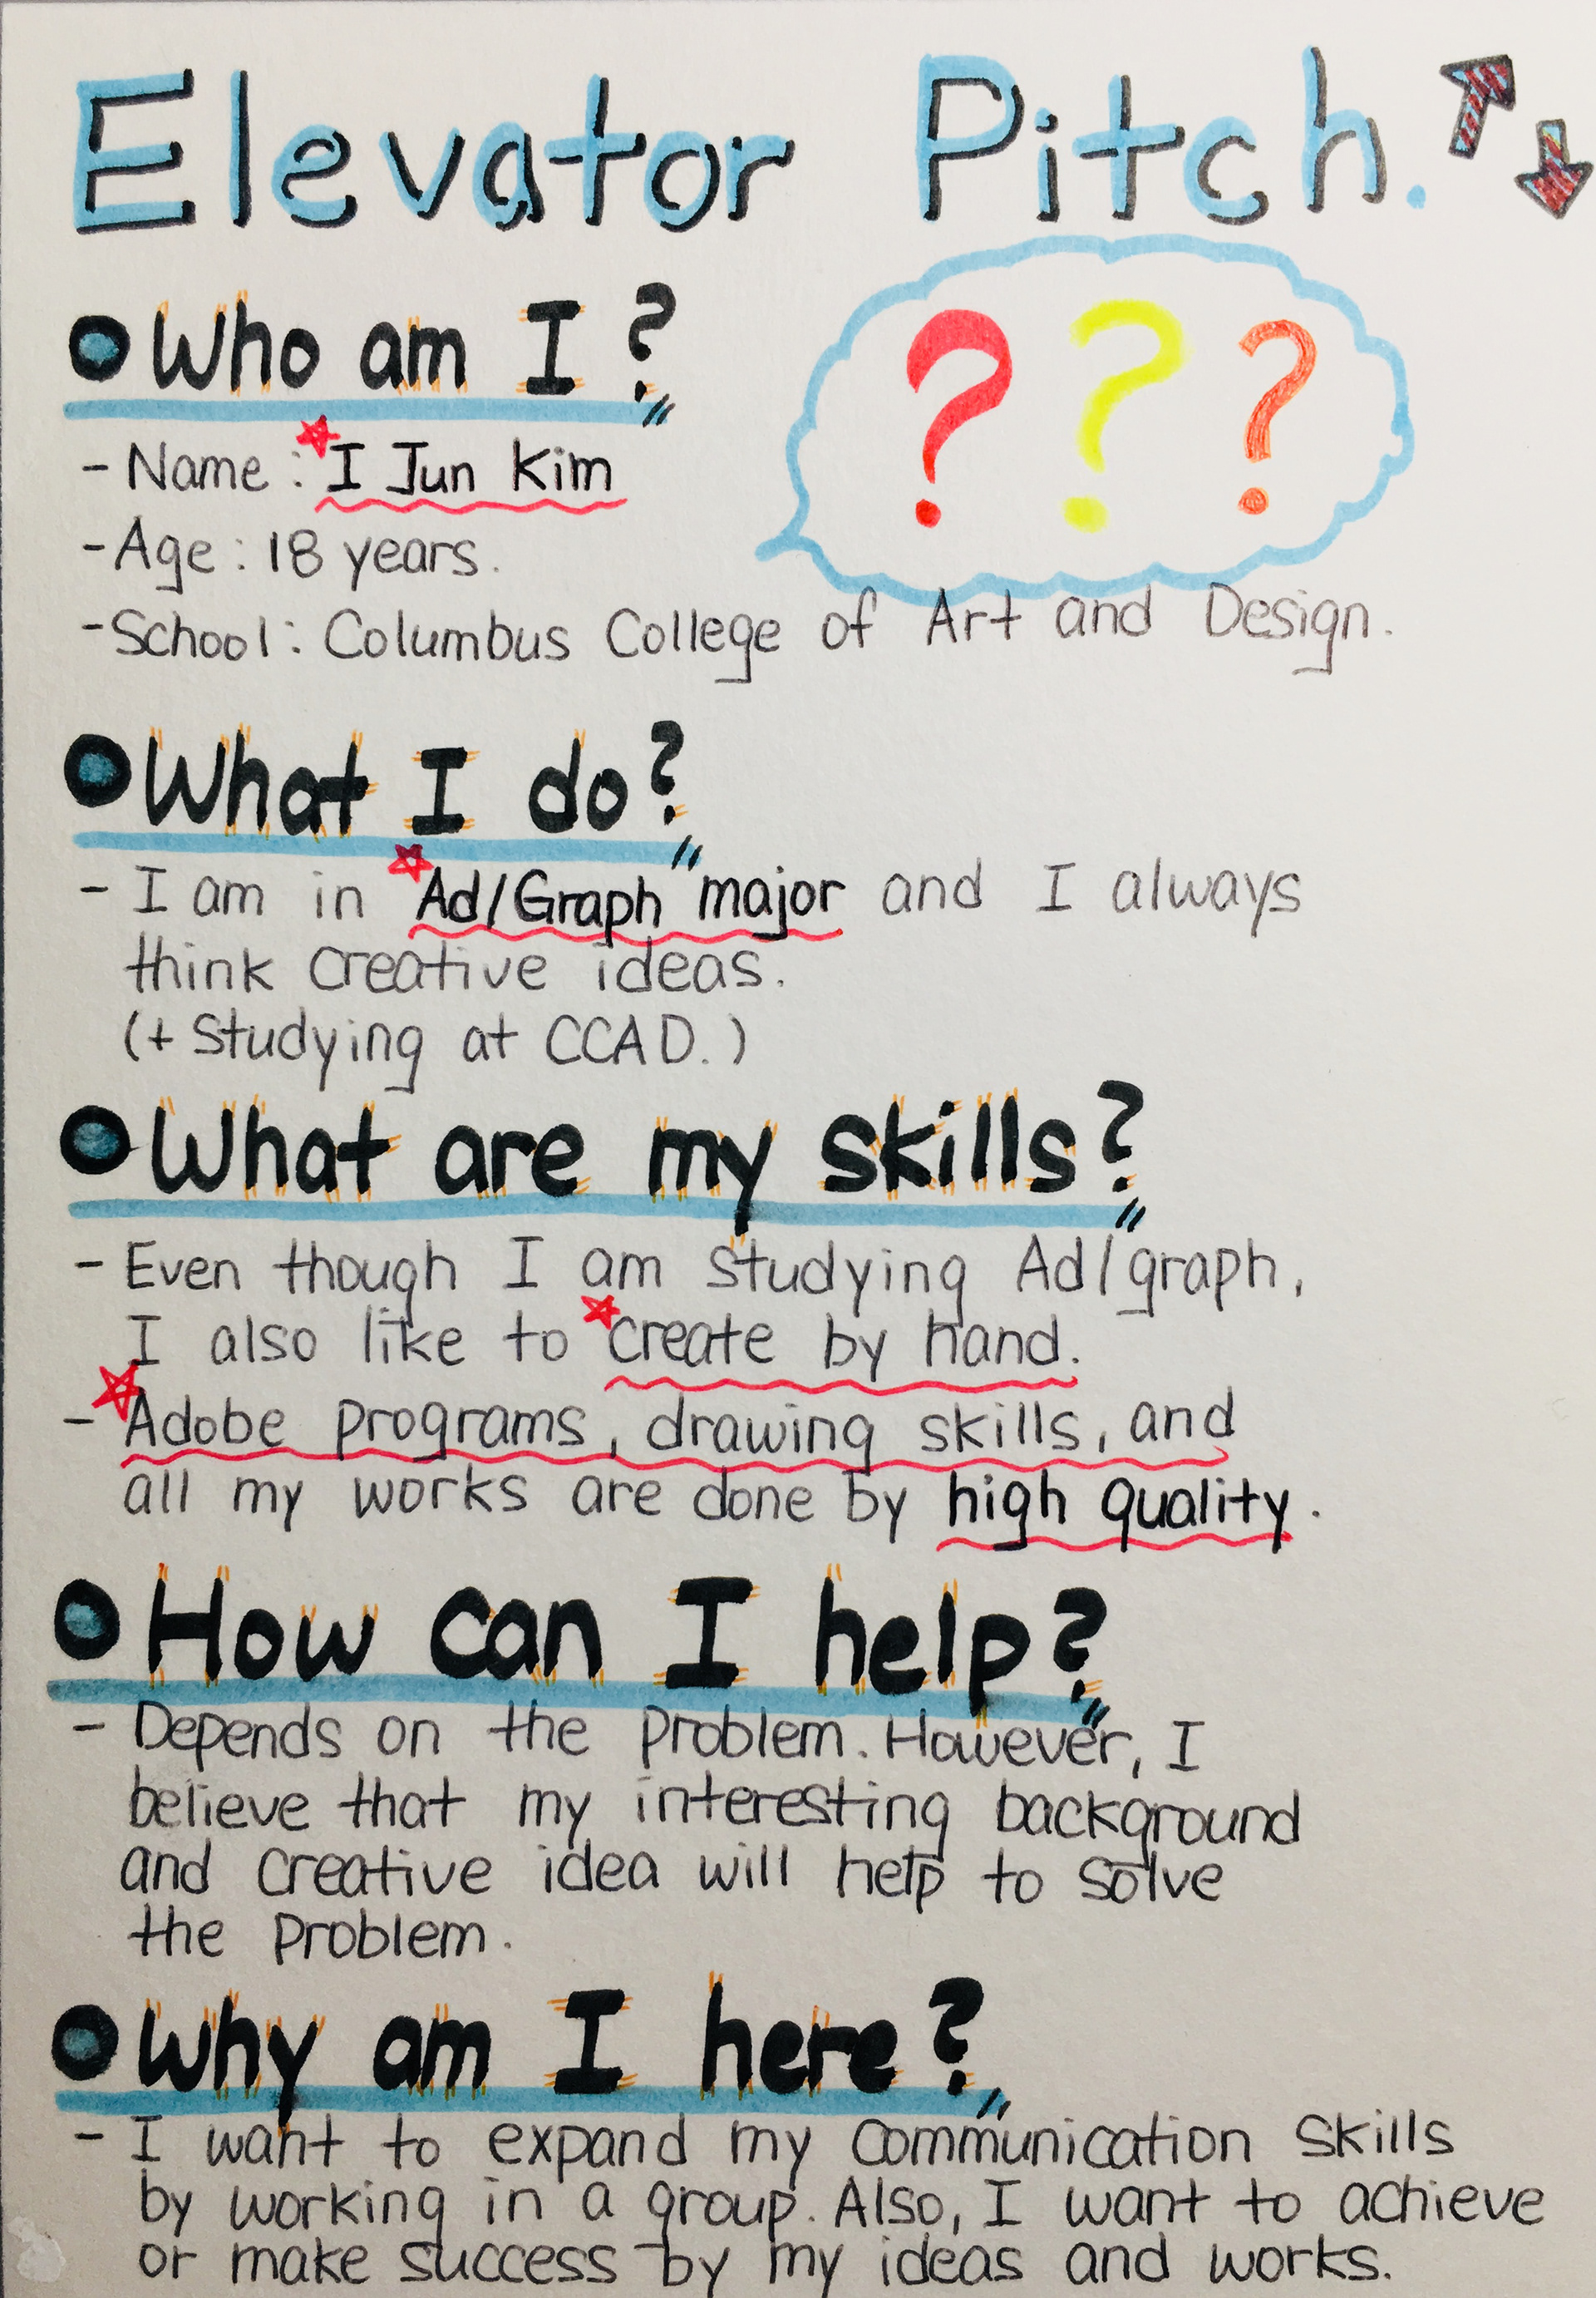 Elevator Pitch.
Who am I?
? ? ?
- Name : I Jun Kim
- Age : 18 years.
- School : Columbus College of Art and Design.
What I do?
- I am in "Ad/Graph" major and I always
think creative ideas.
(+ Studying at CCAD.)
What are my skills?
- Even though I am studying Ad/graph,
I also like to create by hand.
- Adobe programs, drawing skills, and
all my works are done by high quality.
How can I help?
- Depends on the problem. However, I
believe that my interesting background
and creative idea will help to solve
the problem.
Why am I here?
- I want to expand my communication skills
by working in a group. Also, I want to achieve
or make success by my ideas and works.